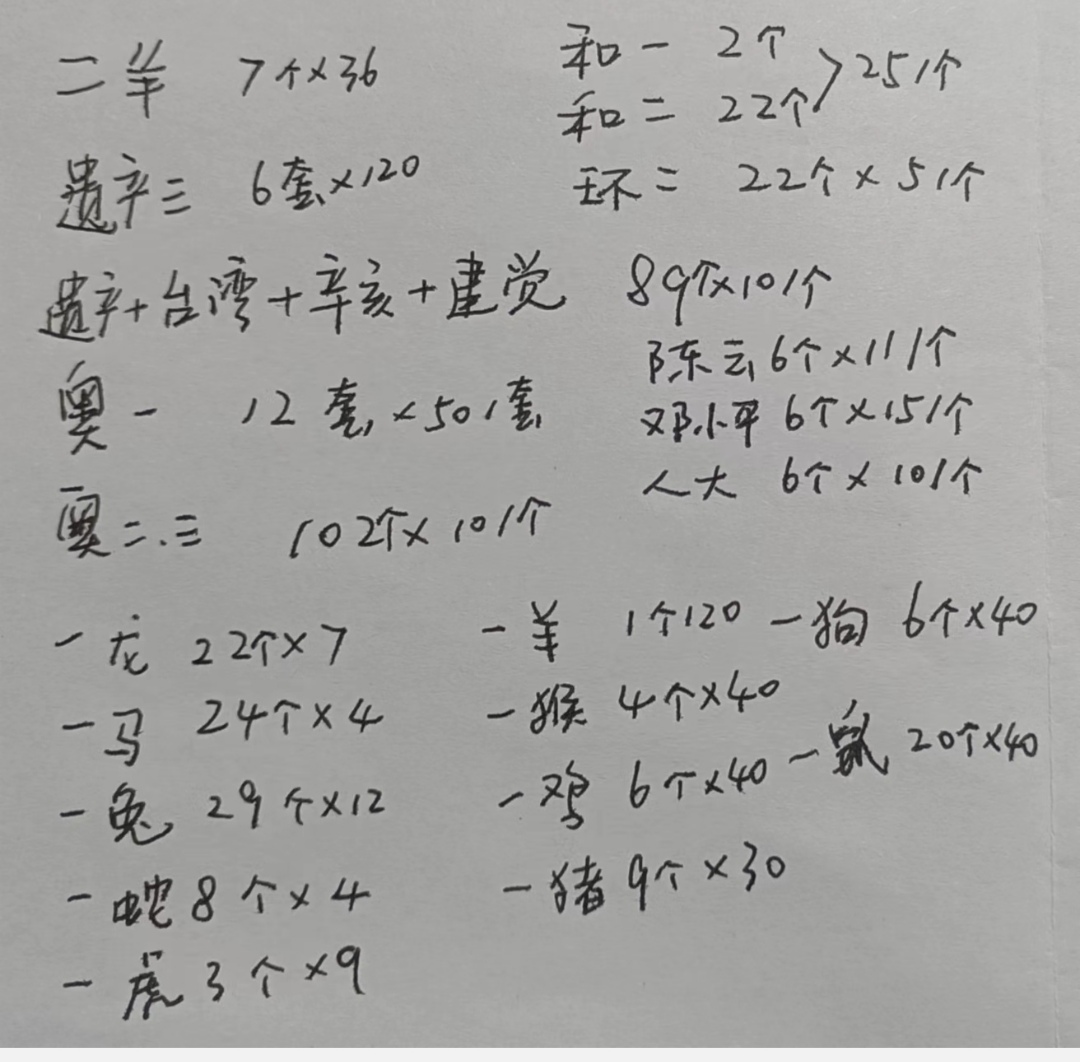 二羊 7个×36
和一 2个
和二 22个 > 25/个
遗产三 6套×120
环二 22个×5/个
遗产+台湾+辛亥+建党 89个×10/个
陈云 6个×11/个
奥一 12套×50/套
邓小平 6个×15/个
人大 6个×10/个
奥二.三 102个×10/个
一龙 22个×7
一羊 1个120
一狗 6个×40
一马 24个×4
一猴 4个×40
一鼠 20个×40
一兔 29个×12
一鸡 6个×40
一蛇 8个×4
一猪 9个×30
一虎 3个×9